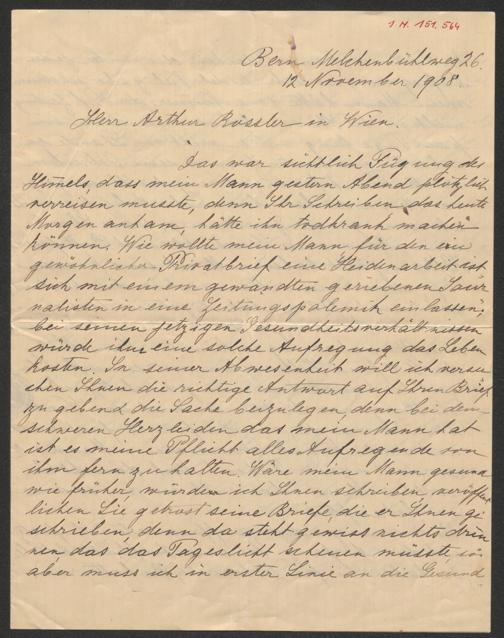 1 N. 151.564
Bern Melchenbühlweg 26.
12 November 1908.
Herr Arthur Rössler in Wien.
Das war sichtlich Fügung des
Himels, dass mein Mann gestern Abend plötzlich
verreisen musste, denn Ihr Schreiben, das heute
Morgen ankam, hätte ihn todkrank machen
können. Wie wollte mein Mann für den ein
gewöhnlicher Privatbrief eine Heidenarbeit ist
sich mit einem gewandten geriebenen Jour
nalisten in eine Zeitungspolemik einlassen,
bei seinen jetzigen Gesundheitsverhältnissen
würde ihm eine solche Aufregung das Leben
kosten. In seiner Abwesenheit will ich versu
chen Ihnen die richtige Antwort auf Ihren Brief
zu geben & die Sache beizulegen, denn bei dem
schweren Herzleiden das mein Mann hat
ist es meine Pflicht alles Aufregende von
ihm fern zu halten. Wäre mein Mann gesund
wie früher, würde ich Ihnen schreiben, veröffent
lichen Sie getrost seine Briefe, die er Ihnen ge
schrieben, denn da steht gewiss nichts drin
nen das das Tageslicht scheuen müsste, so
aber muss ich in erster Linie an die Gesund